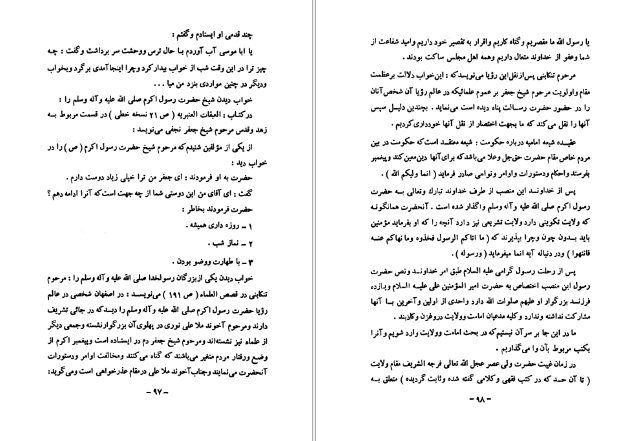 چند قدمی او ایستادم وگفتم :
یا ابا موسی آب آوردم بـا حال ترس ووحشت سر برداشت وگفت : چـه
چیز ترا در این وقت شب از خواب بیدار کرد وچرا اینجا آمدی برگرد وبخواب
ودیگر در چنین مواردی بنزد من میا . . .
خواب دیدن شیخ حضرت رسول اکرم صلی الله علیه وآله وسلم را :
در کتاب : العبقات العنبریه ( ص ۲۱ نسخه خطی ) در قسمت مربوط بـه
زهد وقدس مرحوم شیخ جعفر نجفی می‌نویسد :
از یکی از مؤلفین شنیدم که مرحوم شیخ حضرت رسول اکرم ( ص ) را در
خواب دید :
حضرت به او فرمودند : ای جعفر من ترا خیلی زیاد دوست دارم .
گفت : ای آقای من این دوستی شما از چه جهت است که آنرا ادامه دهم ؟
حضرت فرمودند بخاطر :
۱ – روزه داری همیشه .
۲ – نماز شب .
۳ – با طهارت ووضو بودن .
خواب دیدن یکی از بزرگان رسولخدا صلی الله علیه وآله وسلم را : مرحوم
تنکابنی در قصص العلماء ( ص ۱۹۱ ) می‌نویسد : در اصفهان شخصی در عالم
رؤیا حضرت رسول اکرم صلی الله علیه وآله وسلم را دیـد کـه در جائی تشریف
دارند ومرحوم آخوند ملا علی نوری در پهلوی آن بزرگوار نشسته وجمعی دیگر
از علماء نیز نشسته‌اند ومرحوم شیخ جعفر دم در ایستـاده است وپیغمبر اکرم از
وضع ورفتار مردم متغیر می‌باشند که گناه می‌کنند ومخالفت اوامر ودستورات
آنحضرت می‌نمایند وجناب آخوند ملا علی در مقام عذرخواهی است ومی‌گوید :
– ۹۷ –
یا رسول الله ما مقصریم وگناه کاریم واقرار به تقصیر خود داریم وامید شفاعت از
شما وعفو از خداوند متعال داریم وهمه اهل مجلس ساکت بودند .
مرحوم تنکابنی پس از نقل این رؤیا می‌نویسد که : این خواب دلالت بر عظمت
مقام واولویت مرحوم شیخ جعفر بر عموم علمائیکه در عالم رؤیا آن شخص آنان
را در حضور حضرت رسالت پناه دیده است می‌نماید . بچندین دلیل سپس
آنها را نقل می‌کند که ما بجهت اختصار از نقل آنها خودداری کردیم .
عقیـده شیعه امامیه درباره حکومت : شیعه معتقد است که حکومت در بین
مردم خاص مقام حضرت حق جل وعلا می‌باشد که برای آنها دین معین کند وپیغمبر
بفرستد واحکام ودستورات واوامر ونواهی صادر فرماید ( انما ولیکم الله ) .
پس از خداونـد این منصب از طرف خداوند تبارك وتعالی بـه حضرت
رسول اکرم صلی الله علیه وآله وسلم واگذار شده است . آنحضرت همانگونـه
که ولایت تکوینی دارد ولایت تشریعی نیز دارد آنچه را که او بفرماید مؤمنین
باید بـدون چون وچرا بپذیرند که ( ما اتاکم الرسول فخذوه وما نهاکم عنـه
فانتهوا ) ودر دنباله آیه انما میفرماید ( ورسوله ) .
پس از رحلت رسول گرامی علیه السلام طبق امر خداونـد ونص حضرت
رسول این منصب اختصاص به حضرت امیر المؤمنین علی علیـه السلام ویازده
فرزنـد بزرگوار او علیهم صلوات الله دارد واحدی از اولین وآخرین بـا آنهـا
مشارکت نداشته وندارد و کلیه مدعیان امامت وولایت دروغزن وکذابند .
ما در این جا بر سر آن نیستیم که در بحث امامت وولایت وارد شویم وآنرا
بکتب مربوط بآن وا می‌گذاریم .
در زمان غیبت حضرت ولی عصر عجل الله تعالی فرجه الشریف مقام ولایت
( تا آن حـد که در کتب فقهی وکلامی گفته شده وثابت گردیده ) متعلق بـه
– ۹۸ –